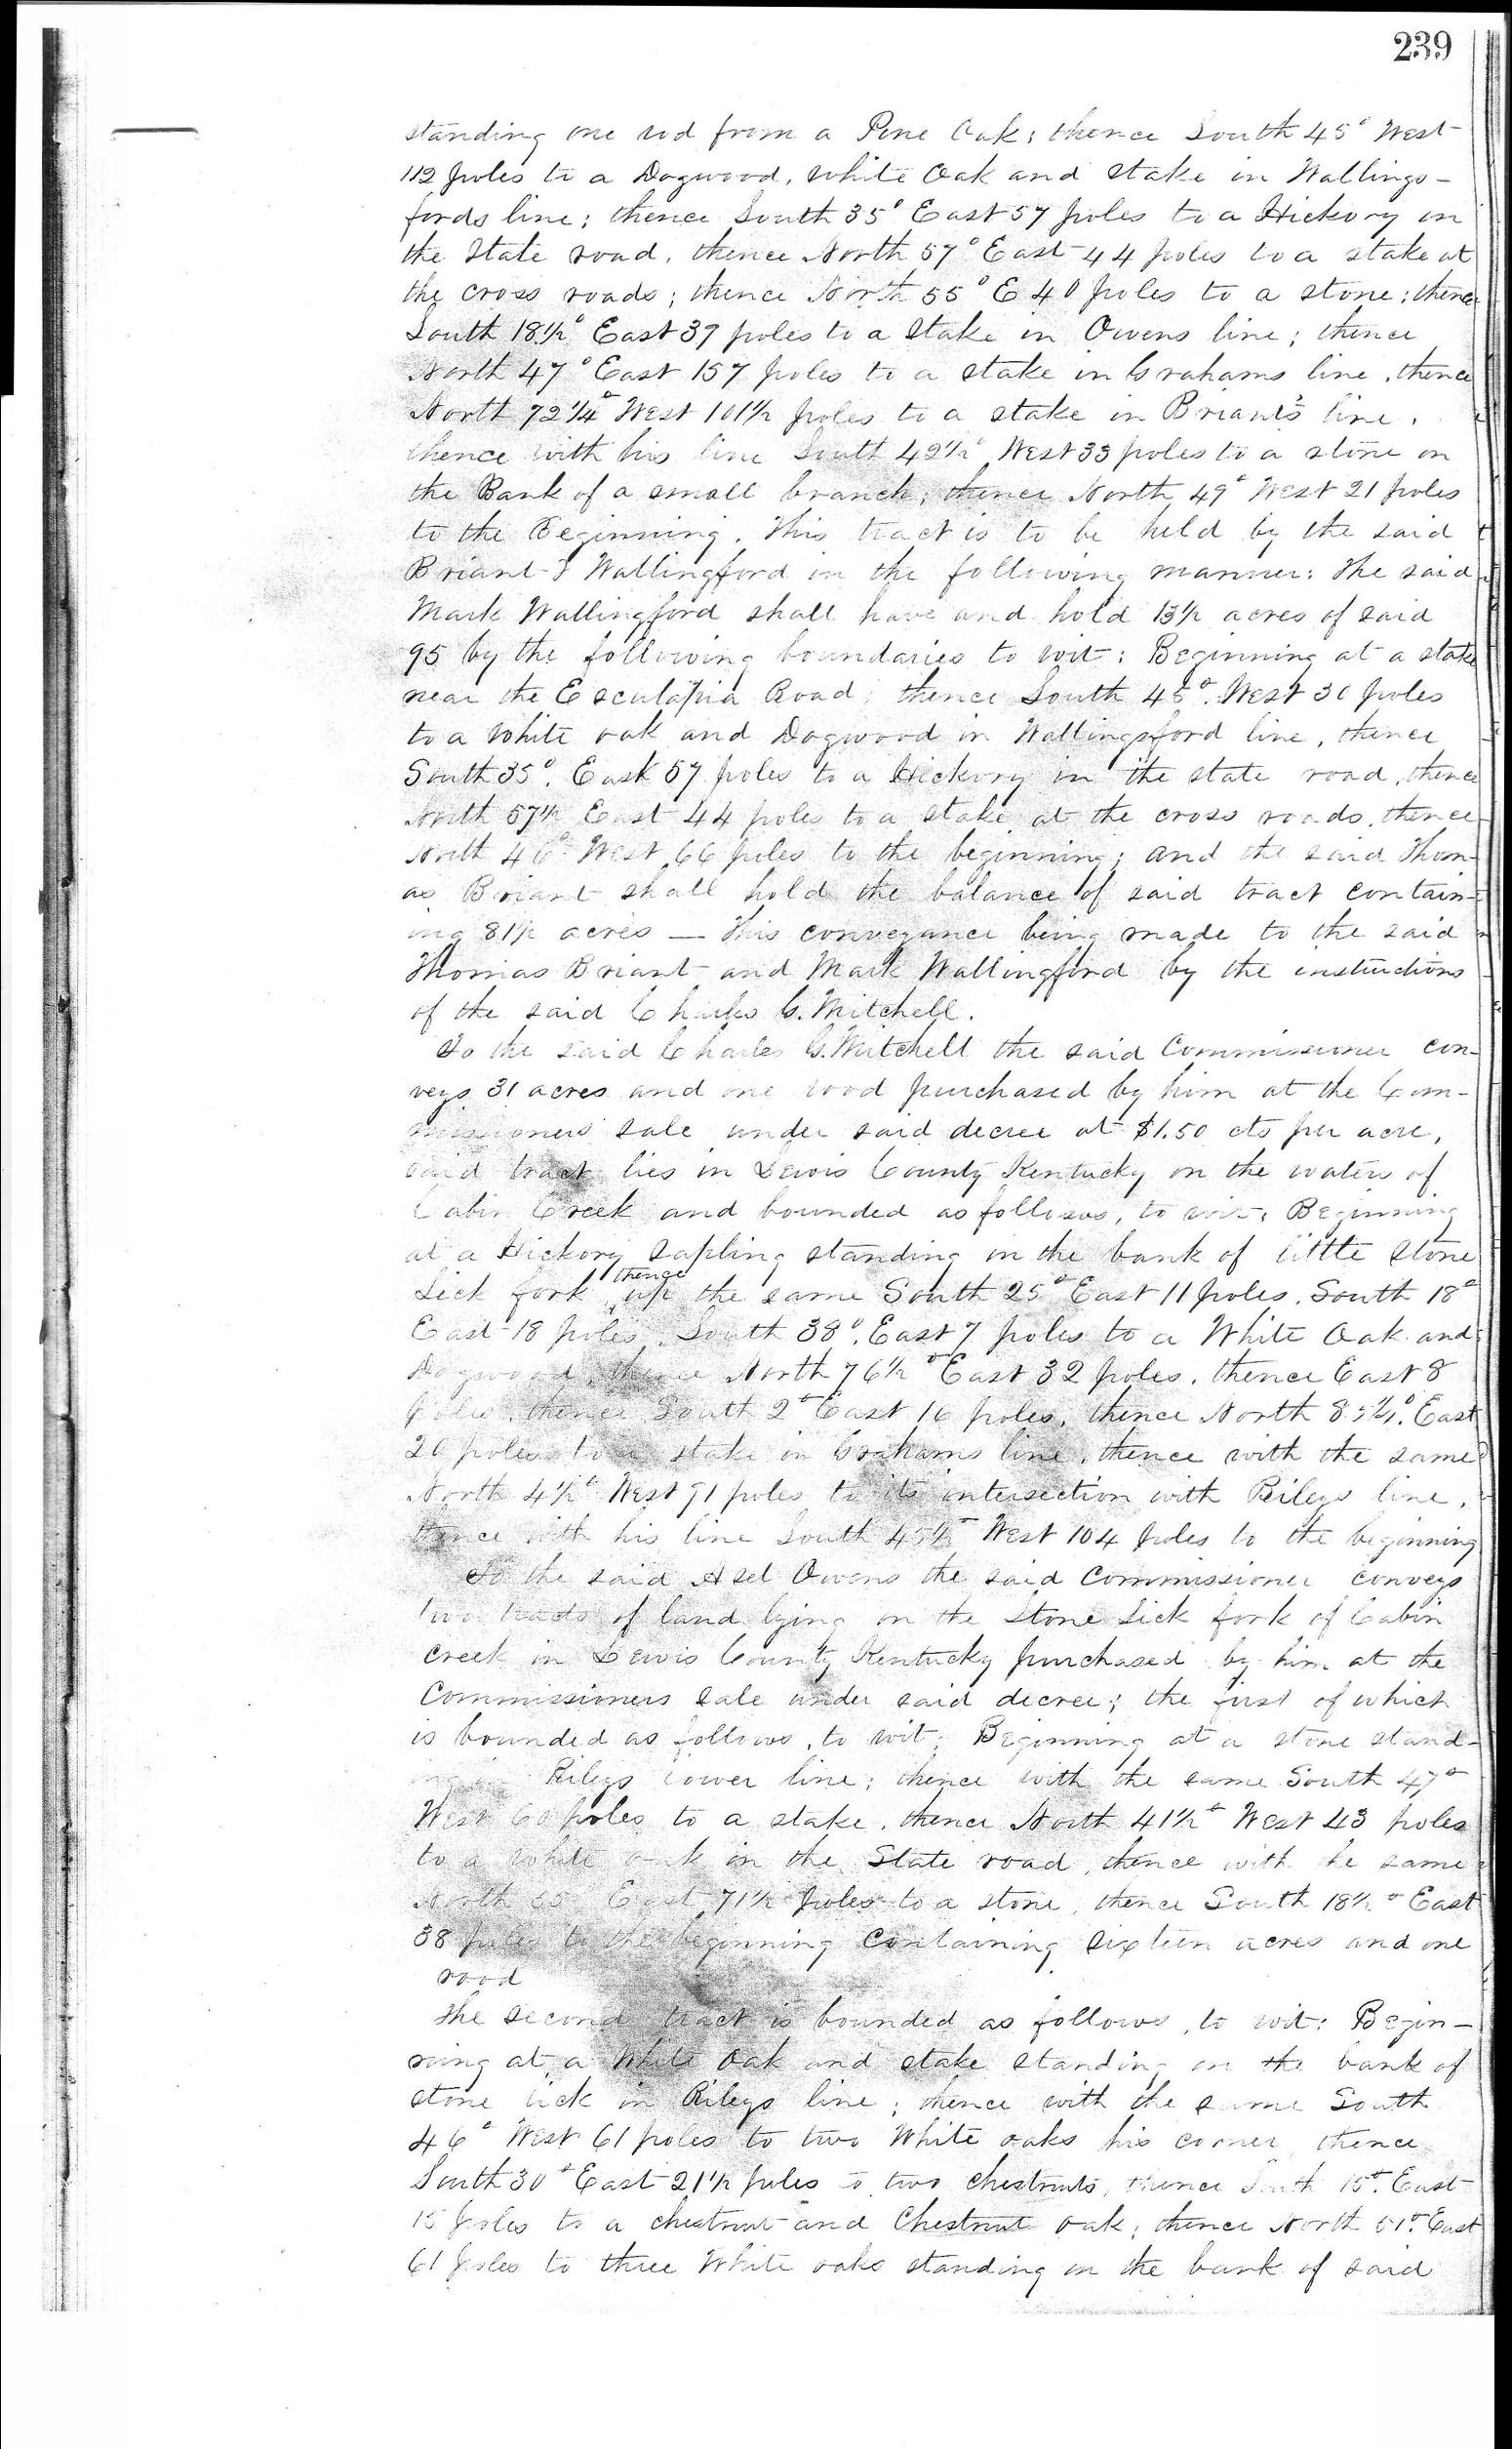 239
standing one rod from a Pine Oak; thence South 45° West
112 poles to a Dogwood, white Oak and stake in Wallings-
fords line; thence South 35° East 57 poles to a Hickory in
the State road, thence North 57° East 44 poles to a stake at
the cross roads; thence North 55° E 40 poles to a stone; thence
South 18½° East 37 poles to a stake in Owens line; thence
North 47° East 157 poles to a stake in Grahams line, thence
North 72¼° West 101½ poles to a stake in Briant's line,
thence with his line South 42½° West 33 poles to a stone on
the Bank of a small branch; thence North 49° West 21 poles
to the Beginning. This tract is to be held by the said
Briant & Wallingford in the following manner: The said
Mark Wallingford shall have and hold 13½ acres of said
95 by the following boundaries to wit: Beginning at a stake
near the Esculapia Road; thence South 45°. West 30 poles
to a white oak and Dogwood in Wallingsford line, thence
South 35°. East 57 poles to a Hickory in the state road, thence
North 57½ East 44 poles to a stake at the cross roads, thence
North 46° West 66 poles to the beginning; and the said Thom-
as Briant shall hold the balance of said tract contain-
ing 81½ acres — This conveyance being made to the said
Thomas Briant and Mark Wallingford by the instructions
of the said Charles G. Mitchell.
To the said Charles G. Mitchell the said Commissioner con-
veys 31 acres and one rood purchased by him at the Com-
missioners sale under said decree at $1.50 cts per acre,
said tract lies in Lewis County Kentucky on the waters of
Cabin Creek and bounded as follows, to wit: Beginning
at a Hickory sapling standing on the bank of little stone
Lick fork thence up the same South 25° East 11 poles, South 18°
East 18 poles, South 38°. East 7 poles to a White Oak and
Dogwood thence North 76½° East 32 poles, thence East 8
poles, thence South 2° East 16 poles, thence North 85½°. East
20 poles to a stake in Grahams line, thence with the same
North 4½° West 91 poles to its intersection with Rileys line,
thence with his line South 45½° West 104 poles to the beginning
To the said Asel Owens the said Commissioner conveys
two tracts of land lying on the Stone Lick fork of Cabin
creek in Lewis County Kentucky purchased by him at the
Commissioners sale under said decree; the first of which
is bounded as follows, to wit; Beginning at a stone stand-
Rileys lower line; thence with the same South 47°
West 60 poles to a stake, thence North 41½° West 43 poles
to a white oak in the State road, thence with the same
North 55 East 71½ poles to a stone, thence South 18½° East
38 poles to the beginning Containing sixteen acres and one
rood
The second tract is bounded as follows, to wit: Begin-
ning at a White Oak and stake standing on the bank of
stone lick in Rileys line; thence with the same South
46° West 61 poles to two White oaks his corner, thence
South 30° East 21½ poles to two chestnuts, thence South 15°. East
15 poles to a chestnut and Chestnut oak; thence North 51°. East
61 poles to three White oaks standing on the bank of said